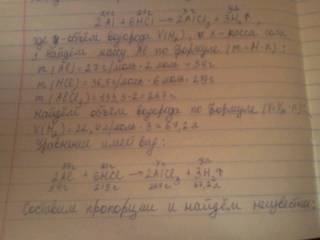 2Al + 6HCl → 2AlCl₃ + 3H₂↑,
где объём водорода V(H₂), x - масса соли
найдём массу Al по формуле (m=M·n):
m(Al)=27г/моль·2моль=54г
m(HCl)=36,5г/моль·6моль=219г
m(AlCl₃)=133,5·2=267г
Найдём объём водорода по формуле
V(H₂)=22,4л/моль·3=67,2л
Уравнение имеет вид:
2Al + 6HCl → 2AlCl₃ + 3H₂↑
54г 219г 267г 67,2л
Составим пропорции и найдём неизвестные: